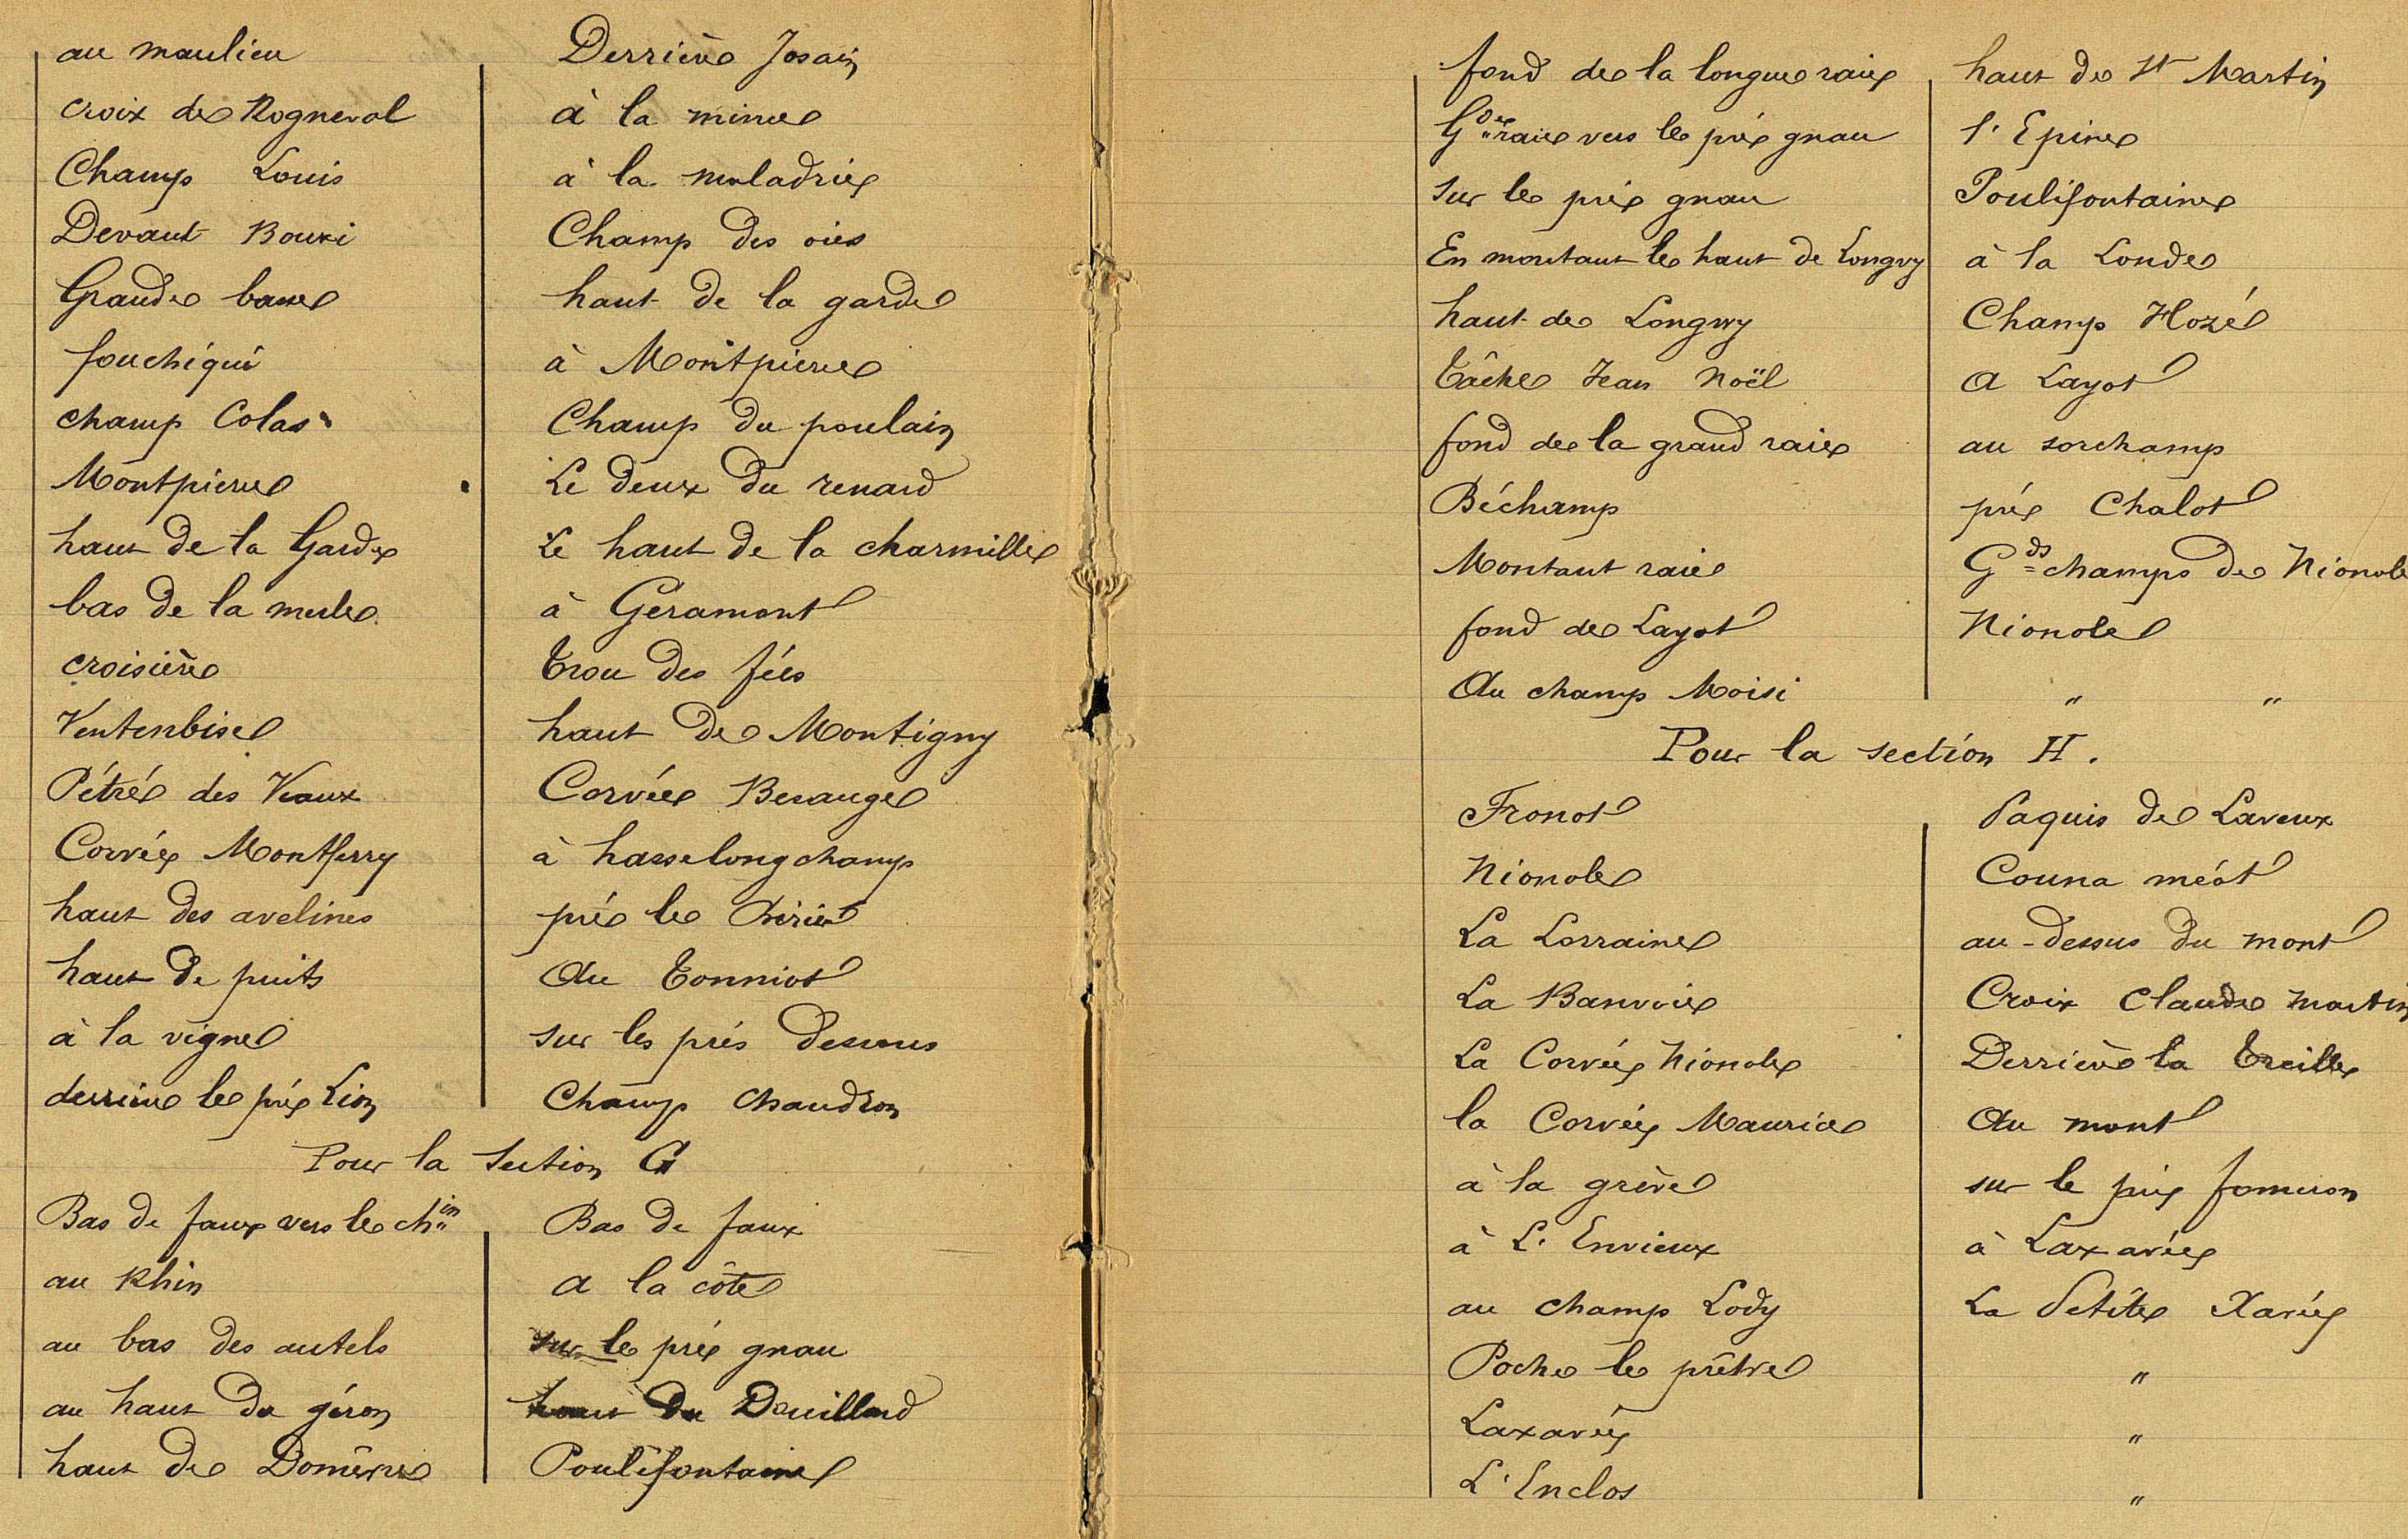 au maulieu
croix de Rogneval
Champ Louis
Devaut Bouxi
Grande basse
fouchiqui
champ Colas
Montpierre
haut de la Garde
bas de la merle
croisière
Ventenbise
Pétrée des Veaux
Corvée Montferry
haut des avelines
haut de puits
à la vigne
derrière le pré Lion
Derrière Josain
à la mine
à la maladrie
Champ des oies
haut de la garde
à Montpierre
Champ du poulain
Le deux du renard
Le haut de la charmille
à Geramont
Trou des fées
haut de Montigny
Corvée Besange
à hasselongchamp
pré le
Au Tonniot
sur les prés dessous
Champ chaudron
Pour la section G
Bas de faux vers le chin
au Rhin
au bas des autels
au haut du géron
haut de Domèvre
Bas de faux
A la côte
sur le pré gnau
haut du Douillard
Poulifontaine
fond de la longue raie
Gde raie vers le pré gnau
sur le pré gnau
En montant le haut de Longvy
haut de Longvy
Tâche Jean Noël
fond de la grand raie
Béchamp
Montant raie
fond de Layot
Au champ Moisi
haut de St Martin
l'Epine
Poulifontaine
à la Londe
Champ Hozé
A Layot
au sorchamp
pré Chalot
Gds champs de Nionole
Nionole
" "
Pour la section H.
Fronot
Nionole
La Lorraine
La Banvoie
La Corvée Nionole
la Corvée Maurice
à la grève
à L'Envieux
au champ Lody
Poche le prêtre
Laxavée
L'Enclos
Paquis de Laveux
Couna méot
au-dessus du mont
Croix Claude Martin
Derrière la Treille
Au mont
sur le pré fomeron
à Laxavée
La Petite Xavée
"
"
"